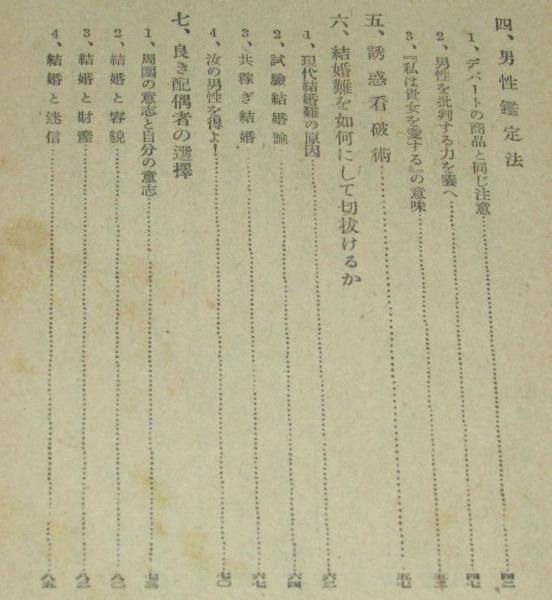 四、男性鑑定法
1、デパートの商品と同じ注意……四三
2、男性を批判する力を養へ……四七
3、『私は貴女を愛する』の意味……五二
五、誘惑看破術……五七
六、結婚難を如何にして切抜けるか
1、現代結婚難の原因……六二
2、試驗結婚論……六四
3、共稼ぎ結婚……六七
4、汝の男性を得よ！……七〇
七、良き配偶者の選擇
1、周圍の意志と自分の意志……七五
2、結婚と容貌……八〇
3、結婚と財產……八二
4、結婚と迷信……八五